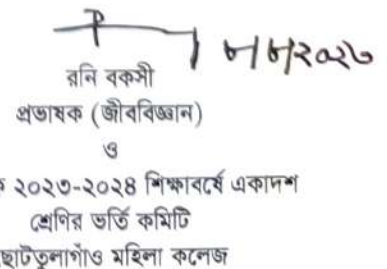 ৮/৮/২০২৩
রনি বকসী
প্রভাষক (জীববিজ্ঞান)
ও
২০২৩-২০২৪ শিক্ষাবর্ষে একাদশ
শ্রেণির ভর্তি কমিটি
ছোটতুলাগাঁও মহিলা কলেজ